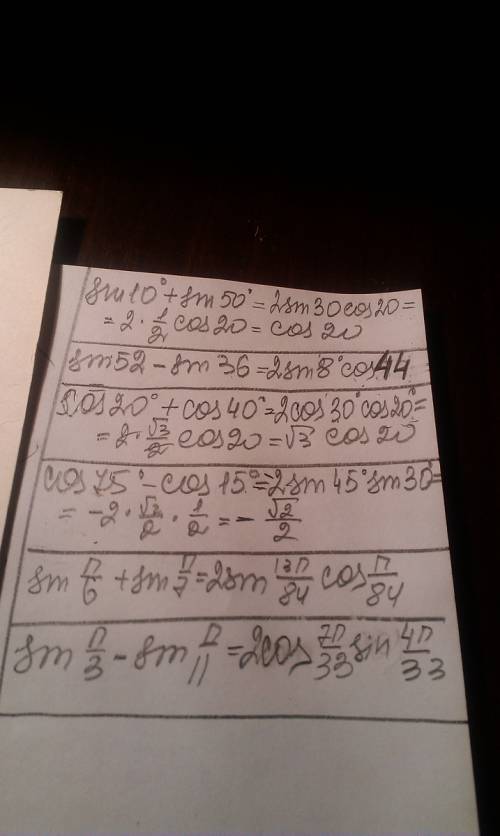 sin10° + sin50° = 2sin30cos20 =
= 2 · 1/2 cos20 = cos20
sin52 - sin36 = 2sin8°cos44
cos20° + cos40° = 2cos30°cos20° =
= 2 · √3/2 cos20 = √3 cos20
cos75° - cos15° = 2sin45°sin30 =
= -2 · √2/2 · 1/2 = - √2/2
sin π/6 + sin π/7 = 2sin 13π/84 cos π/84
sin π/3 - sin π/11 = 2cos 7π/33 sin 4π/33